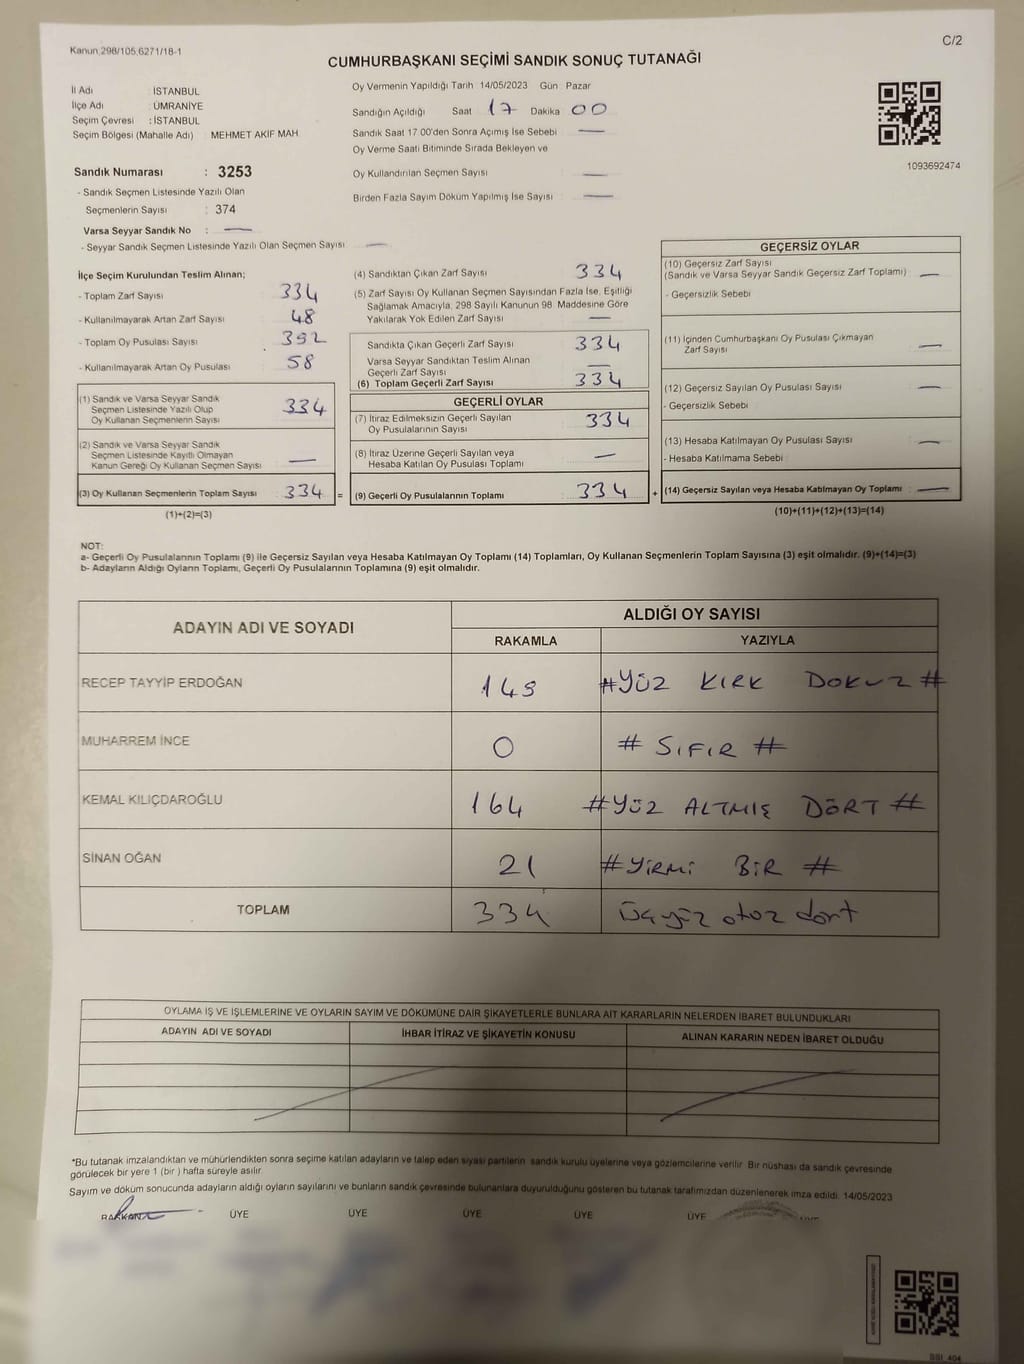 Kanun,298/105,6271/18-1
C/2
CUMHURBAŞKANI SEÇİMİ SANDIK SONUÇ TUTANAĞI
İl Adı : İSTANBUL
İlçe Adı : ÜMRANİYE
Seçim Çevresi : İSTANBUL
Seçim Bölgesi (Mahalle Adı) : MEHMET AKİF MAH
Oy Vermenin Yapıldığı Tarih 14/05/2023 Gün : Pazar
Sandığın Açıldığı Saat 17 Dakika 00
Sandık Saat 17.00'den Sonra Açımış İse Sebebi : —
Oy Verme Saati Bitiminde Sırada Bekleyen ve
Oy Kullandırılan Seçmen Sayısı : —
Birden Fazla Sayım Döküm Yapılmış İse Sayısı : —
1093692474
Sandık Numarası : 3253
- Sandık Seçmen Listesinde Yazılı Olan
Seçmenlerin Sayısı : 374
Varsa Seyyar Sandık No : —
- Seyyar Sandık Seçmen Listesinde Yazılı Olan Seçmen Sayısı : —
İlçe Seçim Kurulundan Teslim Alınan;
- Toplam Zarf Sayısı : 334
- Kullanılmayarak Artan Zarf Sayısı : 48
- Toplam Oy Pusulası Sayısı : 392
- Kullanılmayarak Artan Oy Pusulası : 58
(1) Sandık ve Varsa Seyyar Sandık
Seçmen Listesinde Yazılı Olup
Oy Kullanan Seçmenlerin Sayısı : 334
(2) Sandık ve Varsa Seyyar Sandık
Seçmen Listesinde Kayıtlı Olmayan
Kanun Gereği Oy Kullanan Seçmen Sayısı : —
(3) Oy Kullanan Seçmenlerin Toplam Sayısı : 334 =
(1)+(2)=(3)
(4) Sandıktan Çıkan Zarf Sayısı : 334
(5) Zarf Sayısı Oy Kullanan Seçmen Sayısından Fazla İse, Eşitliği
Sağlamak Amacıyla, 298 Sayılı Kanunun 98. Maddesine Göre
Yakılarak Yok Edilen Zarf Sayısı : —
Sandıkta Çıkan Geçerli Zarf Sayısı : 334
Varsa Seyyar Sandıktan Teslim Alınan
Geçerli Zarf Sayısı : —
(6) Toplam Geçerli Zarf Sayısı : 334
GEÇERLİ OYLAR
(7) İtiraz Edilmeksizin Geçerli Sayılan
Oy Pusulalarının Sayısı : 334
(8) İtiraz Üzerine Geçerli Sayılan veya
Hesaba Katılan Oy Pusulası Toplamı : —
(9) Geçerli Oy Pusulalarının Toplamı : 334 +
GEÇERSİZ OYLAR
(10) Geçersiz Zarf Sayısı
(Sandık ve Varsa Seyyar Sandık Geçersiz Zarf Toplamı) : —
- Geçersizlik Sebebi :
(11) İçinden Cumhurbaşkanı Oy Pusulası Çıkmayan
Zarf Sayısı : —
(12) Geçersiz Sayılan Oy Pusulası Sayısı : —
- Geçersizlik Sebebi :
(13) Hesaba Katılmayan Oy Pusulası Sayısı : —
- Hesaba Katılmama Sebebi :
(14) Geçersiz Sayılan veya Hesaba Katılmayan Oy Toplamı : —
(10)+(11)+(12)+(13)=(14)
NOT:
a- Geçerli Oy Pusulalarının Toplamı (9) ile Geçersiz Sayılan veya Hesaba Katılmayan Oy Toplamı (14) Toplamları, Oy Kullanan Seçmenlerin Toplam Sayısına (3) eşit olmalıdır. (9)+(14)=(3)
b- Adayların Aldığı Oyların Toplamı, Geçerli Oy Pusulalarının Toplamına (9) eşit olmalıdır.
ADAYIN ADI VE SOYADI
ALDIĞI OY SAYISI
RAKAMLA YAZIYLA
RECEP TAYYİP ERDOĞAN 149 #YÜZ KIRK DOKUZ#
MUHARREM İNCE 0 # SIFIR #
KEMAL KILIÇDAROĞLU 164 #YÜZ ALTMIŞ DÖRT #
SİNAN OĞAN 21 #YİRMİ BİR #
TOPLAM 334 üçyüz otuz dört
OYLAMA İŞ VE İŞLEMLERİNE VE OYLARIN SAYIM VE DÖKÜMÜNE DAİR ŞİKAYETLERLE BUNLARA AİT KARARLARIN NELERDEN İBARET BULUNDUKLARI
ADAYIN ADI VE SOYADI İHBAR İTİRAZ VE ŞİKAYETİN KONUSU ALINAN KARARIN NEDEN İBARET OLDUĞU
*Bu tutanak imzalandıktan ve mühürlendikten sonra seçime katılan adayların ve talep eden siyasi partilerin sandık kurulu üyelerine veya gözlemcilerine verilir. Bir nüshası da sandık çevresinde
görülecek bir yere 1 (bir ) hafta süreyle asılır.
Sayım ve döküm sonucunda adayların aldığı oyların sayılarını ve bunların sandık çevresinde bulunanlara duyurulduğunu gösteren bu tutanak tarafımızdan düzenlenerek imza edildi. 14/05/2023
BAŞKAN ÜYE ÜYE ÜYE ÜYE ÜYE ÜYE